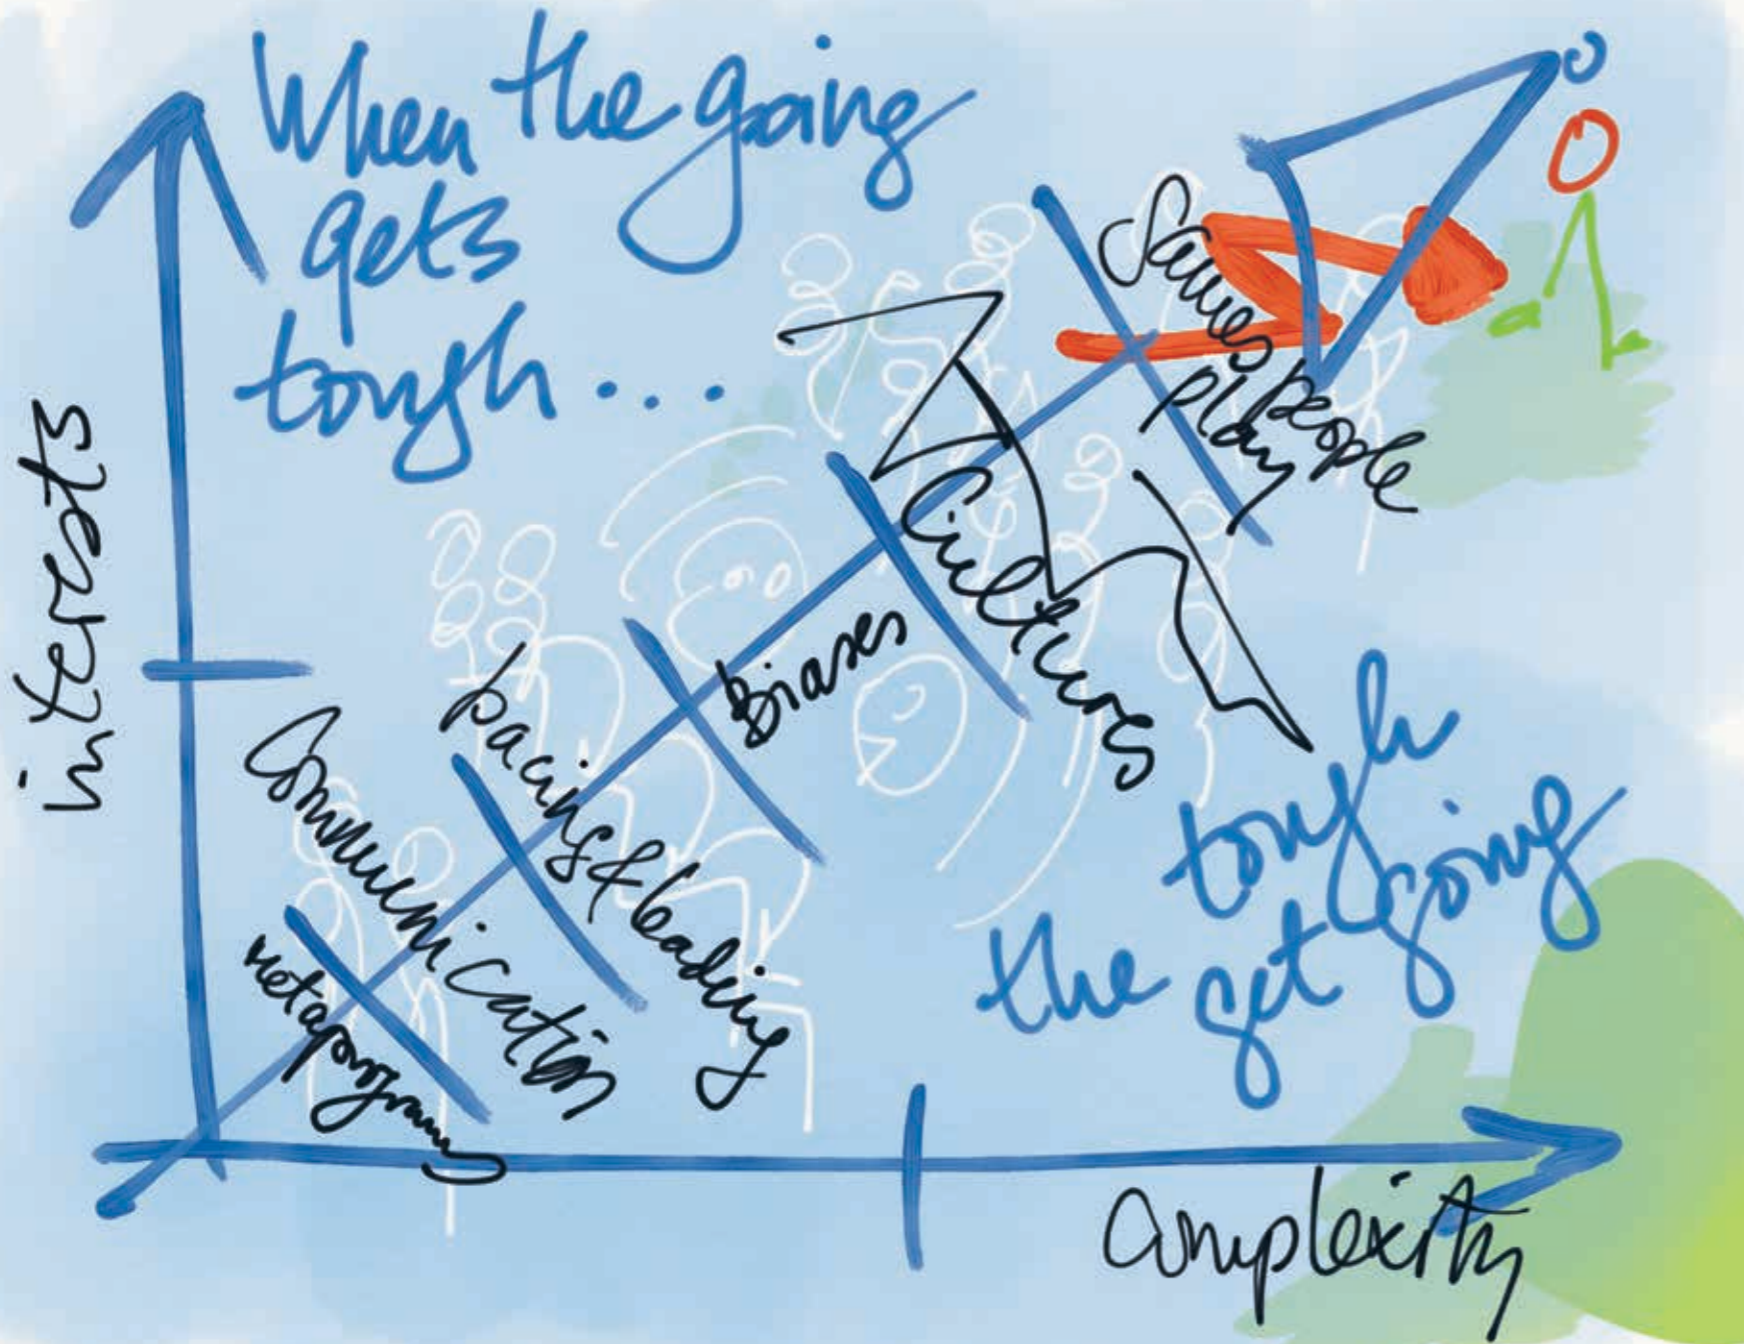 When the going
gets
tough....
interests
metaprograms
Communication
pacing & leading
Biases
Cultures
Games people
play
the tough
get going
complexity